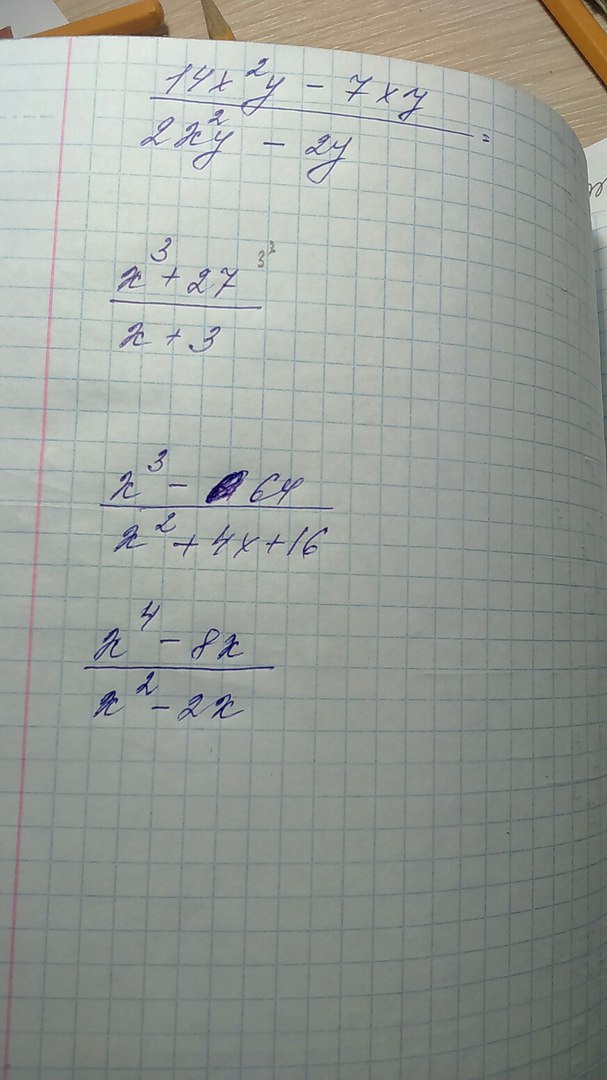 14x²y - 7xy
2x²y - 2y =
x³ + 27 3³
x + 3
x³ - 64
x² + 4x + 16
x⁴ - 8x
x² - 2x